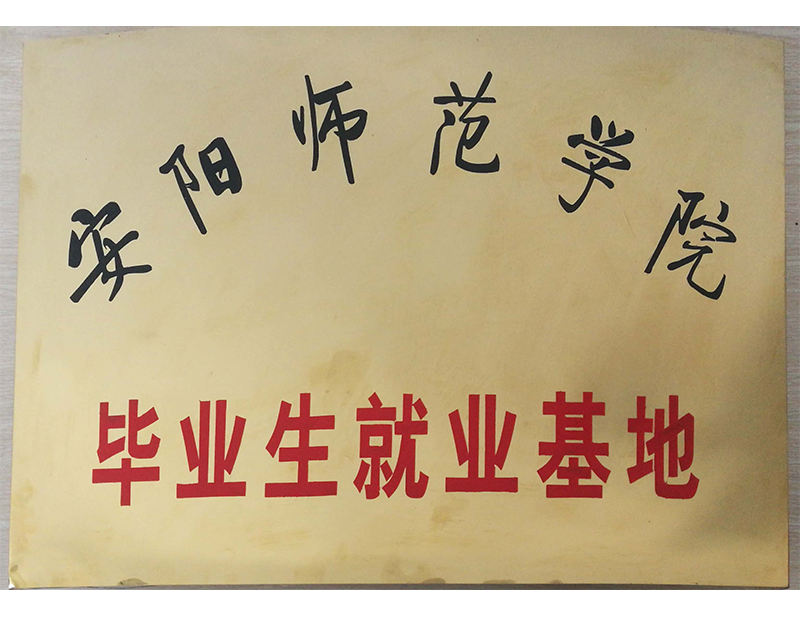 安阳师范学院
毕业生就业基地